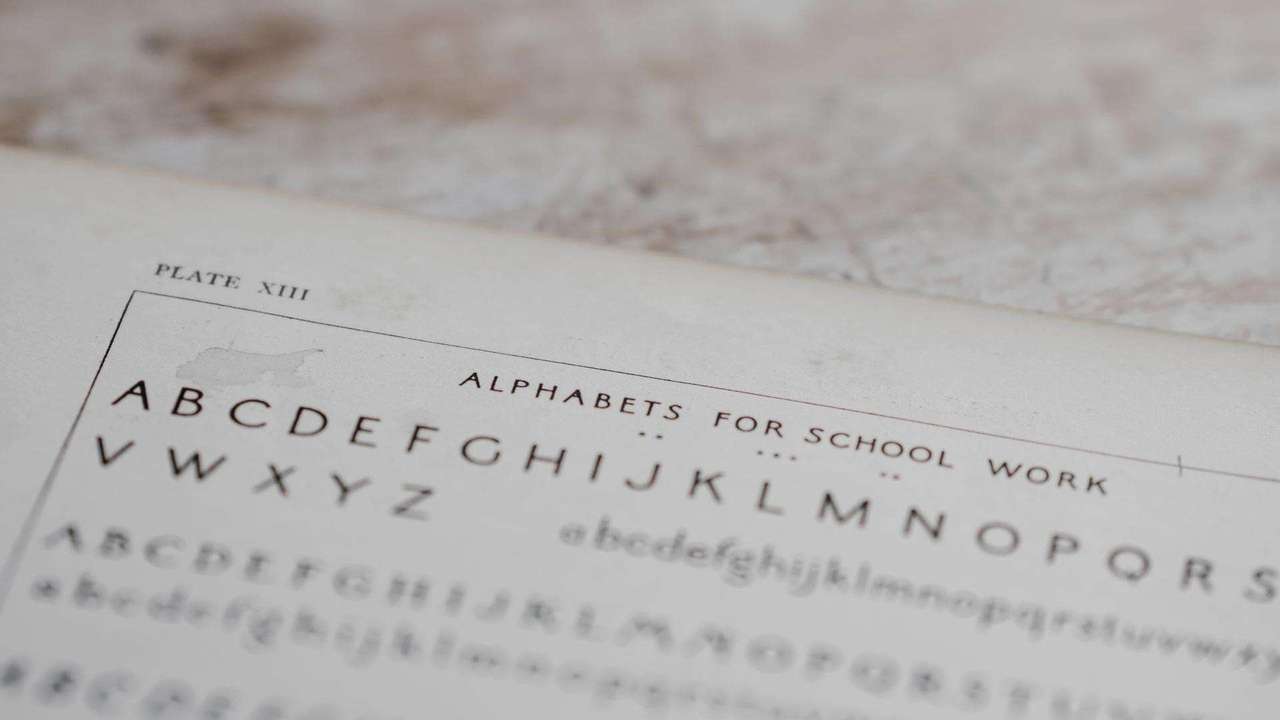 PLATE XIII
ALPHABETS FOR SCHOOL WORK
A B C D E F G H I J K L M N O P Q R S
V W X Y Z
abcdefghijklmnopqrstuvwxy
A B C D E F G H I J K L M N O P Q R S T U V
abcdefghijklmnopqrst
A B C D E F G